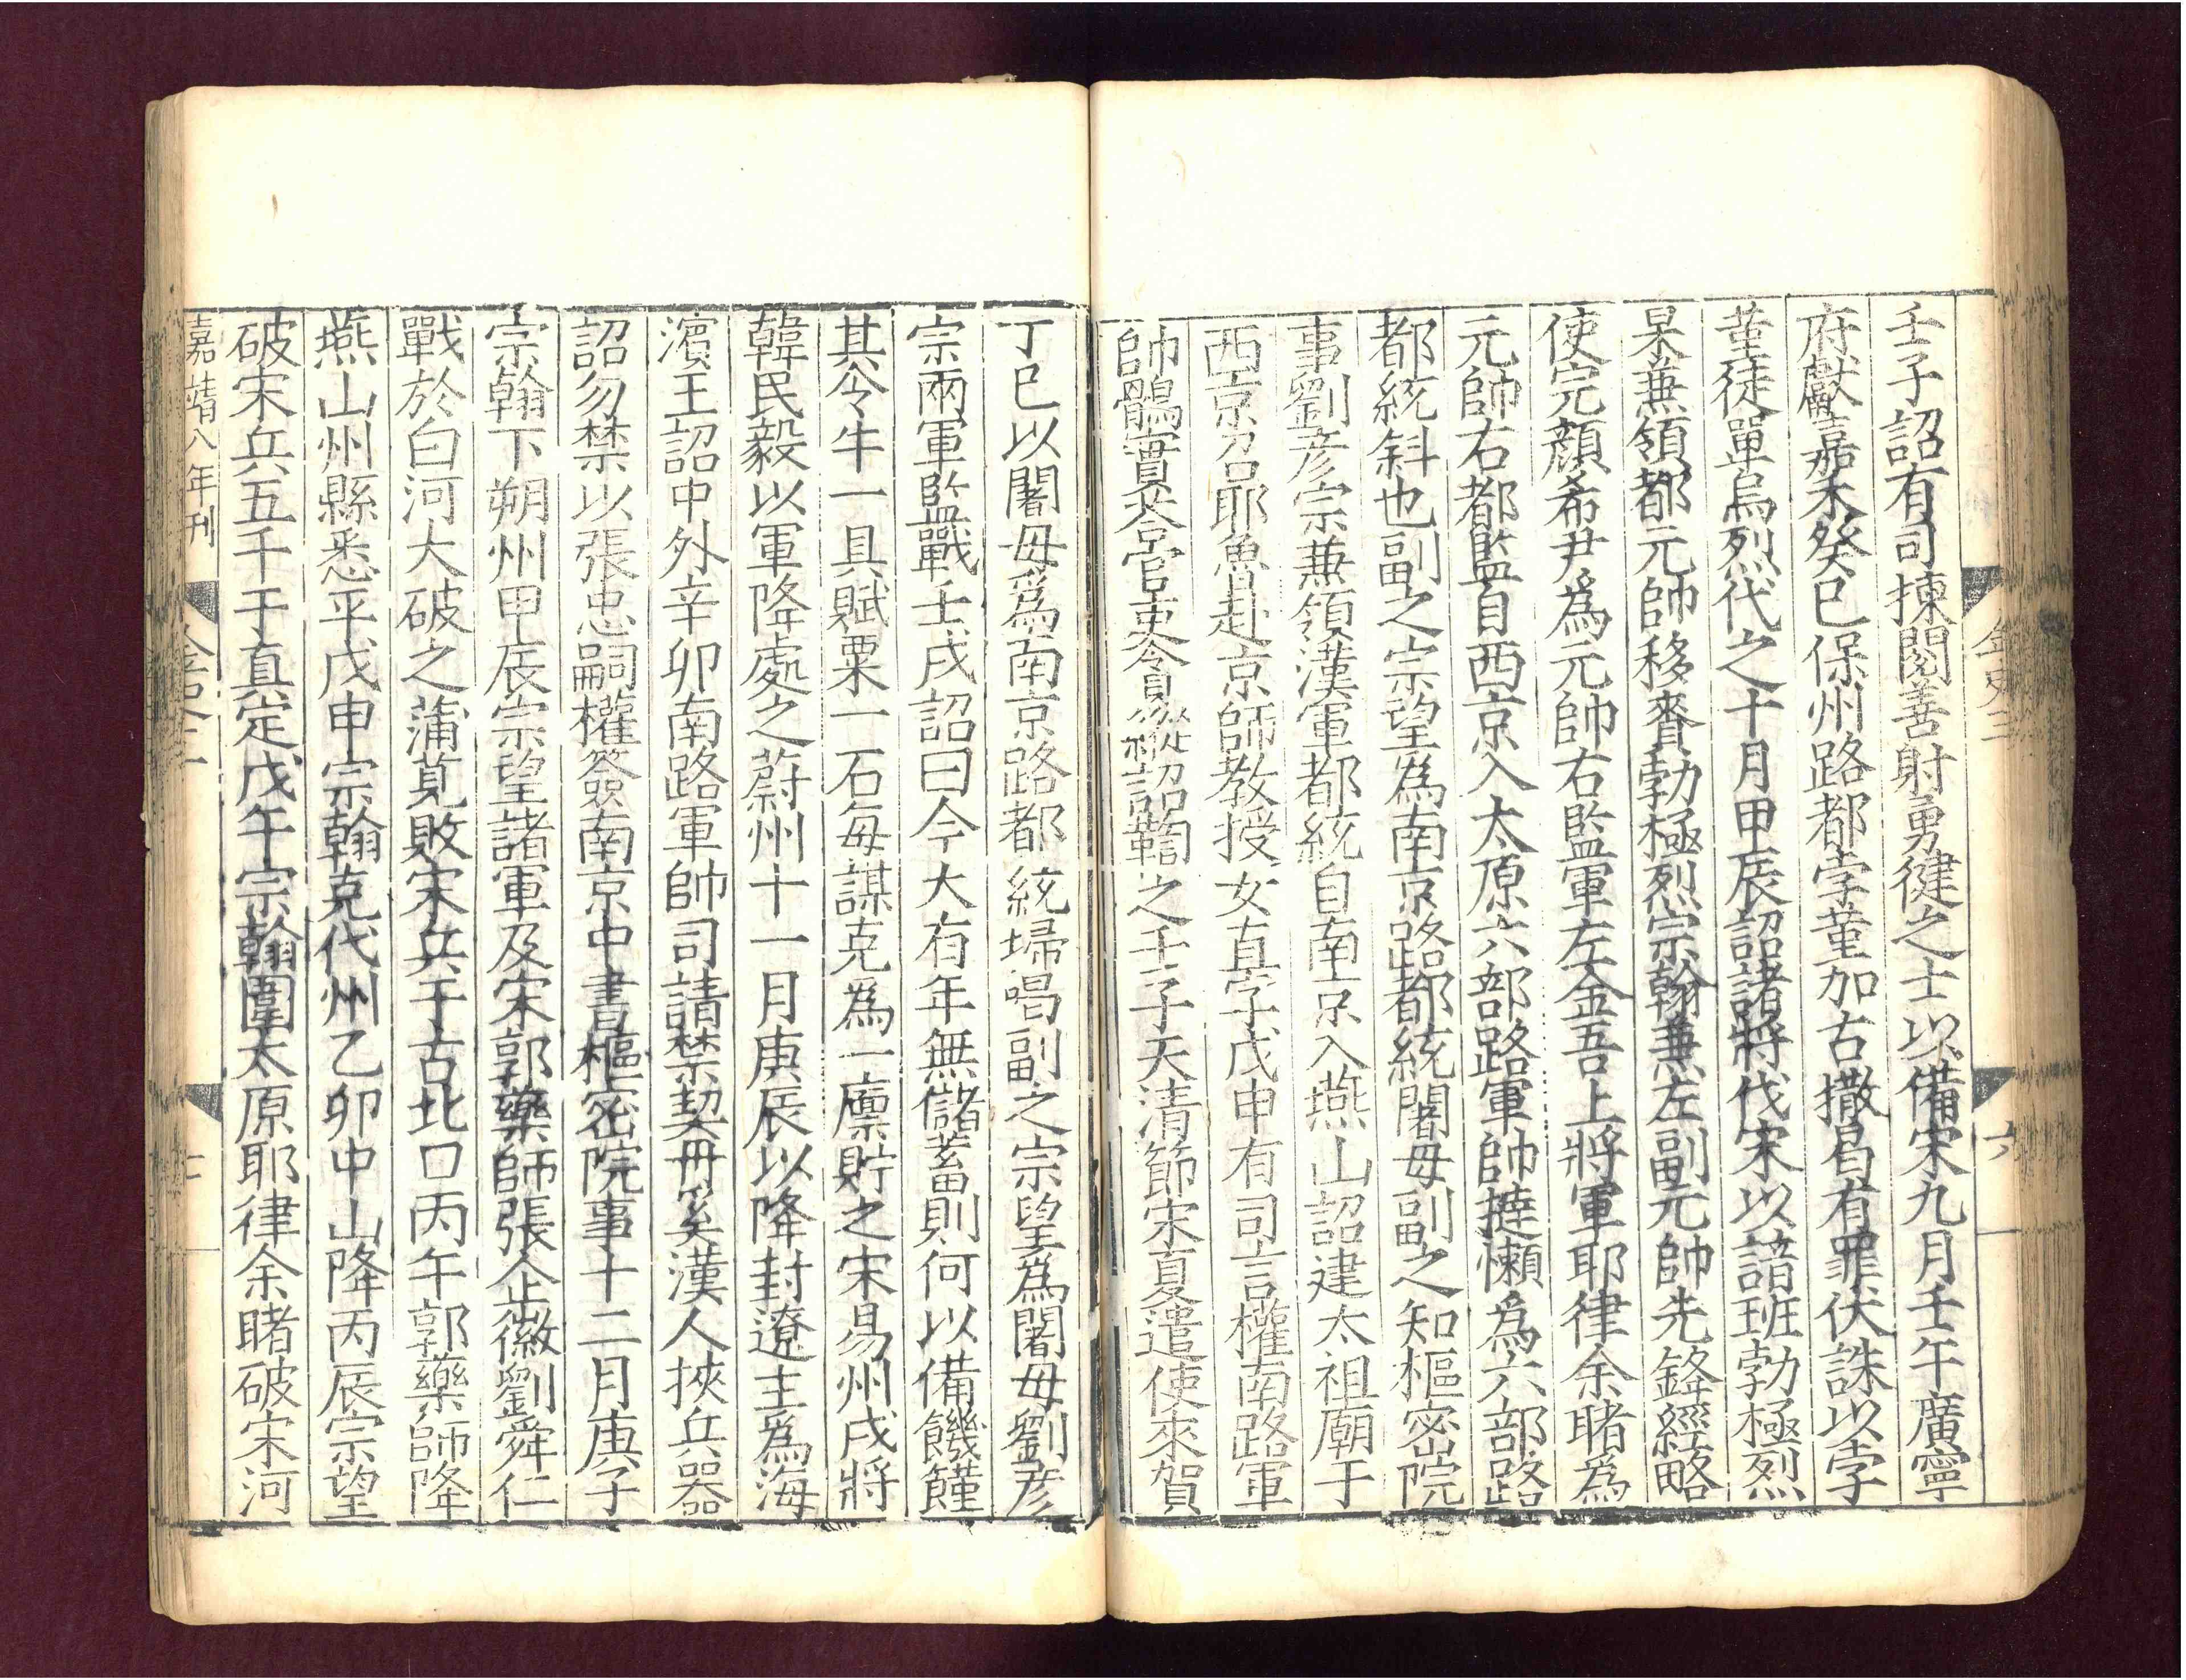 壬子詔有司揀閱善射勇健之士以備宋九月壬午廣寧
府獻嘉禾癸巳保州路都孛菫加古撒曷有罪伏誅以孛
菫徒單烏烈代之十月甲辰詔諸將伐宋以諳班勃極烈
杲兼領都元帥移賚勃極烈宗翰兼左副元帥先鋒經略
使完顏希尹爲元帥右監軍左金吾上將軍耶律余睹爲
元帥右都監自西京入太原六部路軍帥撻懶爲六部路
都統斜也副之宗望爲南京路都統闍母副之知樞密院
事劉彥宗兼領漢軍都統自南京入燕山詔建太祖廟于
西京召耶魯赴京師教授女直字戊申有司言權南路軍
帥鶻實荅官吏貪縱詔鞫之壬子天清節宋夏遣使來賀
金史三
六
丁巳以闍母爲南京路都統埽喝副之宗望爲闍母劉彥
宗兩軍監戰壬戌詔曰今大有年無儲蓄則何以備饑饉
其令牛一具賦粟一石每謀克爲一廩貯之宋易州戍將
韓民毅以軍降處之蔚州十一月庚辰以降封遼主爲海
濱王詔中外辛卯南路軍帥司請禁契丹奚漢人挾兵器
詔勿禁以張忠嗣權簽南京中書樞密院事十二月庚子
宗翰下朔州甲辰宗望諸軍及宋郭藥師張企徽劉舜仁
戰於白河大破之蒲莧敗宋兵于古北口丙午郭藥師降
燕山州縣悉平戊申宗翰克代州乙卯中山降丙辰宗望
破宋兵五千于真定戊午宗翰圍太原耶律余睹破宋河
嘉靖八年刊
金史三
七